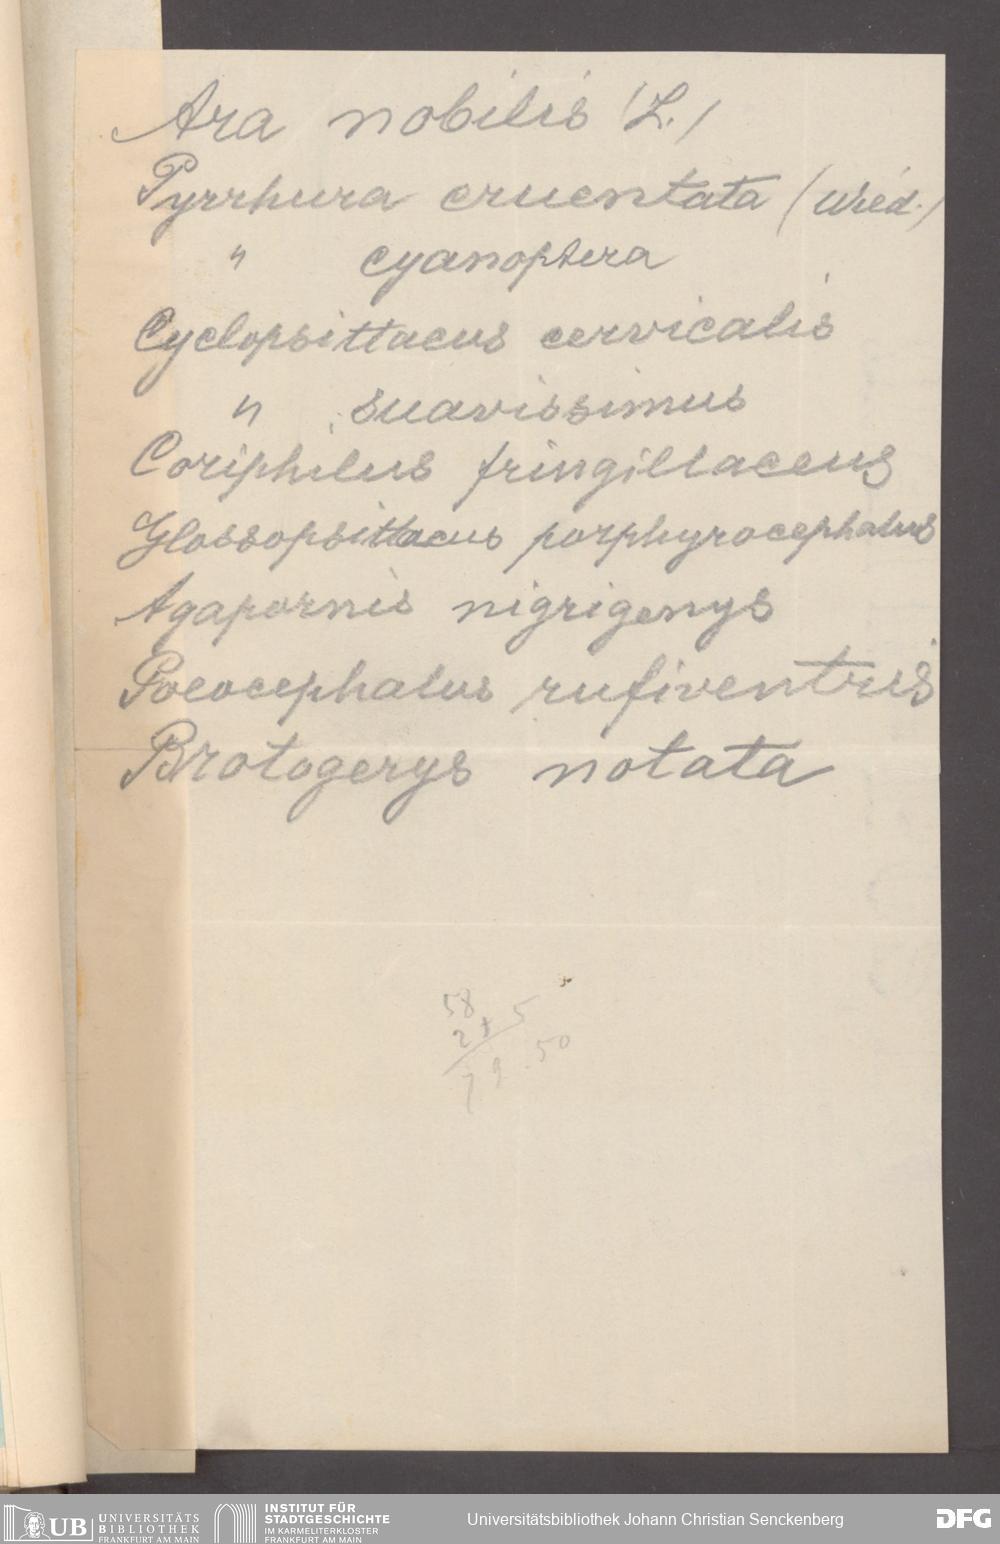 Ara nobilis (L.)
Pyrrhura cruentata (Wied.)
" cyanoptera
Cyclopsittacus cervicalis
" suavissimus
Coriphilus fringillaceus
Glossopsittacus porphyrocephalus
Agapornis nigrigenys
Poeocephalus rufiventris
Brotogerys notata
58
2+ 5
79.50
UB UNIVERSITÄTS
BIBLIOTHEK
FRANKFURT AM MAIN
INSTITUT FÜR
STADTGESCHICHTE
IM KARMELITERKLOSTER
FRANKFURT AM MAIN
Universitätsbibliothek Johann Christian Senckenberg
DFG